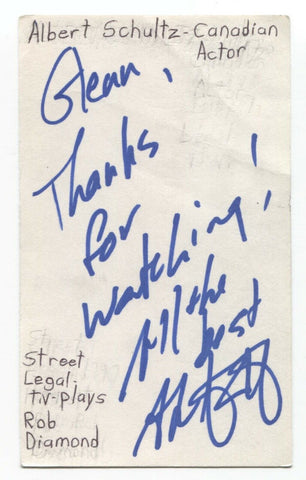 Albert Schultz-Canadian
Actor
Glenn,
Thanks
for
watching!
All the
best
Street
Legal,
t.v-plays
Rob
Diamond